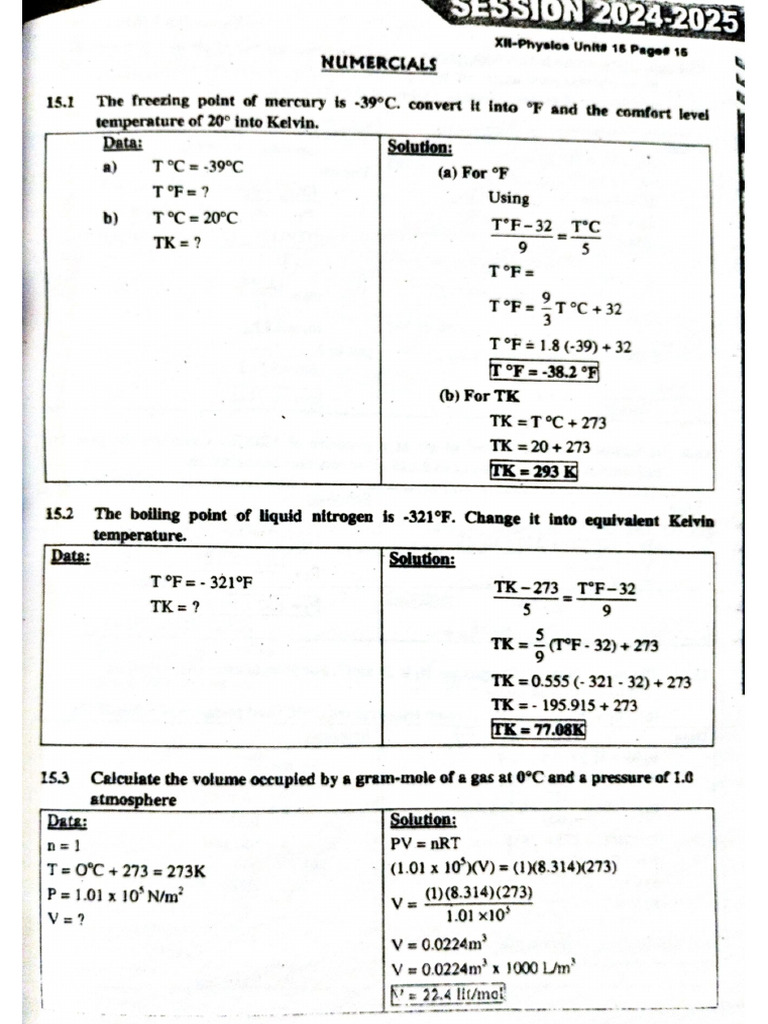 SESSION 2024-2025
XII-Physics Unit# 15 Page# 15
NUMERCIALS
15.1 The freezing point of mercury is -39°C. convert it into °F and the comfort level
temperature of 20° into Kelvin.
Data:
a) T °C = -39°C
T °F = ?
b) T °C = 20°C
TK = ?
Solution:
(a) For °F
Using
T°F – 32 / 9 = T°C / 5
T °F =
T °F = 9/3 T °C + 32
T °F = 1.8 (-39) + 32
T °F = -38.2 °F
(b) For TK
TK = T °C + 273
TK = 20 + 273
TK = 293 K
15.2 The boiling point of liquid nitrogen is -321°F. Change it into equivalent Kelvin
temperature.
Data:
T °F = - 321°F
TK = ?
Solution:
TK – 273 / 5 = T°F – 32 / 9
TK = 5/9 (T°F - 32) + 273
TK = 0.555 (- 321 - 32) + 273
TK = - 195.915 + 273
TK = 77.08K
15.3 Calculate the volume occupied by a gram-mole of a gas at 0°C and a pressure of 1.0
atmosphere
Data:
n = 1
T = O°C + 273 = 273K
P = 1.01 x 10⁵ N/m²
V = ?
Solution:
PV = nRT
(1.01 x 10⁵)(V) = (1)(8.314)(273)
V = (1)(8.314)(273) / 1.01 ×10⁵
V = 0.0224m³
V = 0.0224m³ x 1000 L/m³
V = 22.4 lit/mol